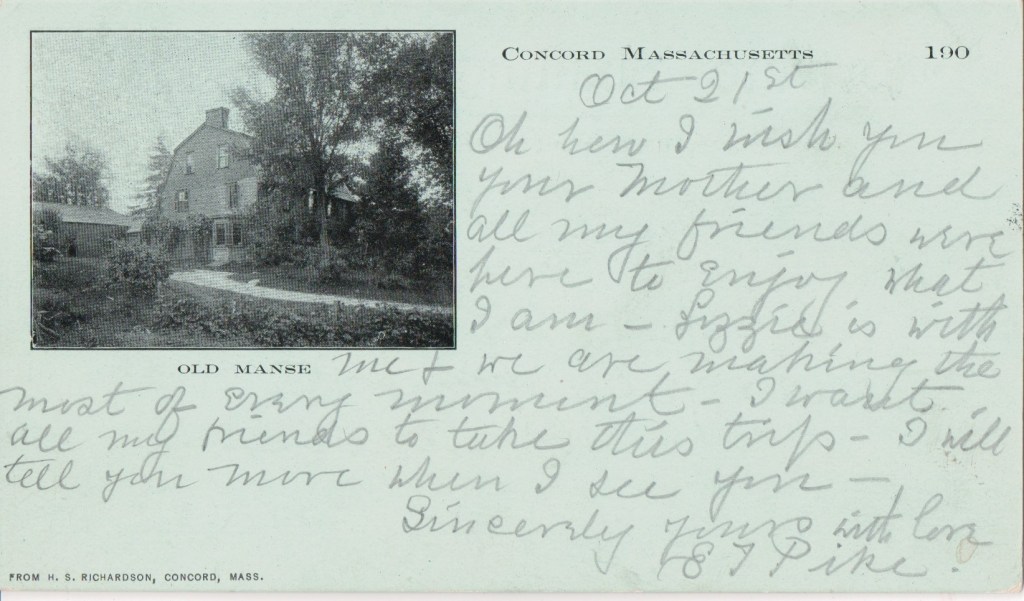 CONCORD MASSACHUSETTS 190
Oct 21st
Oh how I wish you
your Mother and
all my friends were
here to enjoy what
I am - Lizzie is with
OLD MANSE
me & we are making the
most of every moment - I want
all my friends to take this trip - I will
tell you more when I see you -
Sincerely yours with love
E T Pike.
FROM H. S. RICHARDSON, CONCORD, MASS.